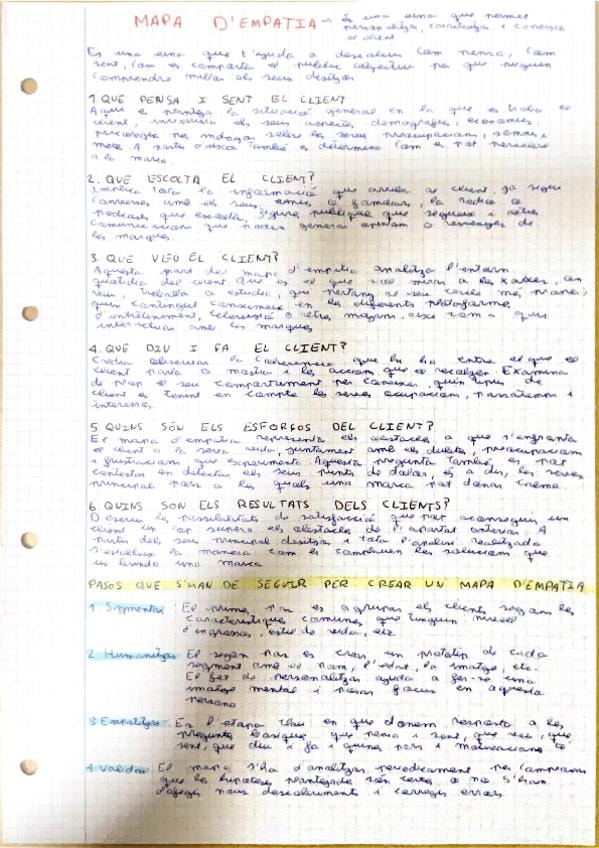 MAPA D'EMPATIA → és una eina que permet
personalitzar, caracteritzar i conèixer
al client
Es una eina que t'ajuda a descobrir com pensa, com
sent, com es comporta el públic objectiu per que puguem
comprendre millor els seus desitjos
1 QUE PENSA I SENT EL CLIENT
Aqui es planteja la situació general en la que es troba el
client, involucra els seus aspectes demogràfics, econòmics,
psicològics per indagar sobre les seves preocupacions, somnis i
metes. A partir d'això també es determina com es pot percebre
a la marca.
2. QUE ESCOLTA EL CLIENT?
Implica tota la informació que arriba al client. Ja sigui
converses amb els seus amics o familiars, la radio o
podcasts que escolta, figures publiques que segueix i altres
comunicacions que poden generar opinions o missatges de
les marques.
3. QUE VEU EL CLIENT?
Aquesta part del mapa d'empatia analitza l'entorn
quotidià del client que es el que sol mirar a les xarxes, on
viu, treballa o estudia, qui pertany al seu cercle més proper i
quin contingut consumeix en les diferents plataformes
d'entreteniment, televisió o altres mitjans, així com a que
interactua amb les marques
4. QUE DIU I FA EL CLIENT?
Caldria observar la coherencia que hi ha entre el que el
client parla o mostra i les accions que es realitzen. Examina
de prop el seu comportament per conèixer quin tipus de
client es tenent en compte les seves ocupacions, passatemps i
interessos.
5 QUINS SÓN ELS ESFORÇOS DEL CLIENT?
El mapa d'empatia representa els obstacles a que s'enfronta
el client a la seva vida, juntament amb els dubtes, preocupacions
i frustracions que experimenta. Aquesta pregunta també es pot
contestar en detectar els seus punts de dolor, es a dir, les seves
principal pors a les quals una marca pot donar
6. QUINS SON ELS RESULTATS DELS CLIENTS?
Descriu les possibilitats de satisfacció que pot aconseguir un
client un cop supera els obstacles de l'apartat anterior. A
partir dels seus principal desitjos i tota l'analisi realitzada
s'estableix la manera com es compleixen les solucions que
us brinda una marca
PASOS QUE S'HAN DE SEGUIR PER CREAR UN MAPA D'EMPATIA
1 Segmentar: El primer pas es agrupar els clients segons les
característiques comunes que tinguin, nivell
d'ingressos, estil de vida, etc
2 Humanitzar: El segon pas es crear un prototip de cada
segment amb el nom, l'edat, la imatge, etc.
El fet de personalitzar ajuda a fer-se una
imatge mental i posar focus en aquesta
persona.
3 Empatitzar: Es l'etapa clau en que donem resposta a les
preguntes basiques, que pensa i sent, que veu, que
sent, que diu i fa i quines pors i motivacions té
4 Validar: El mapa s'ha d'analitzar periodicament per comprovar
que les hipotesis plantejades son certes o no. S'han
d'afegir nous descobriments i corregir errors.